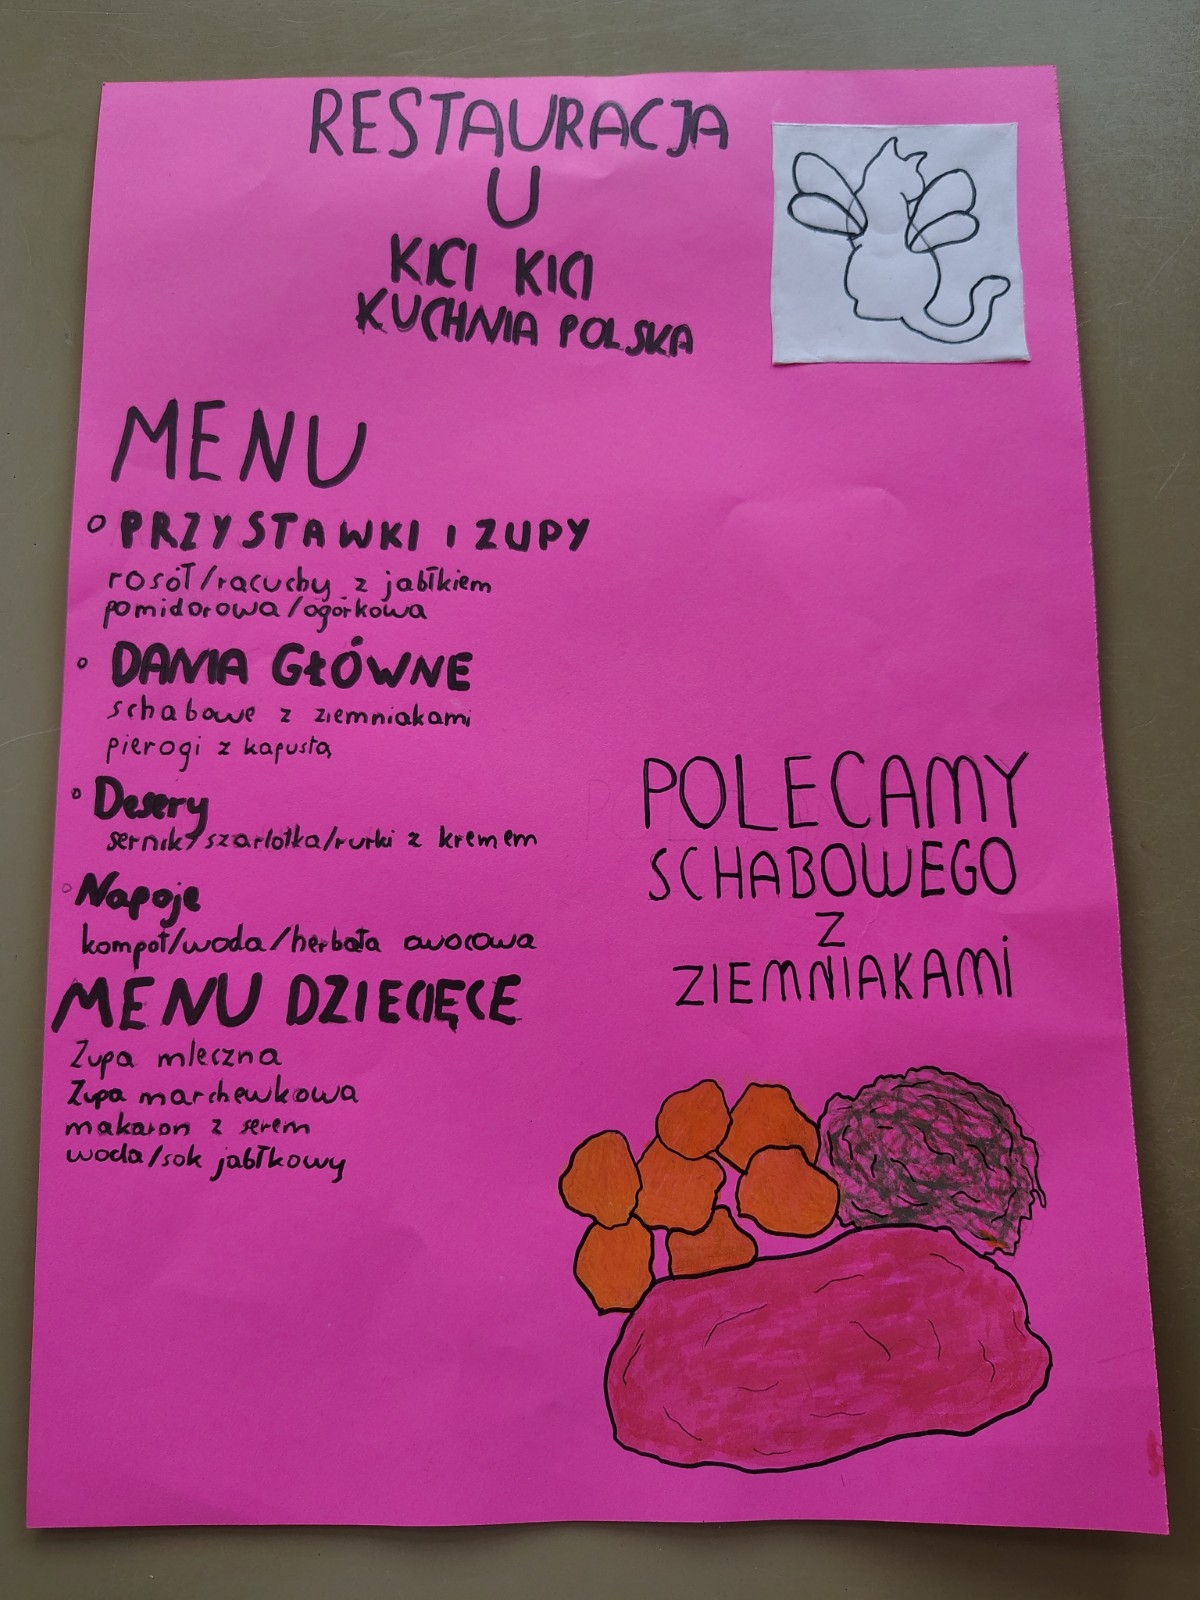 RESTAURACJA
U
KICI KICI
KUCHNIA POLSKA
MENU
PRZYSTAWKI I ZUPY
rosół/racuchy z jabłkiem
pomidorowa/ogórkowa
DANIA GŁÓWNE
schabowe z ziemniakami
pierogi z kapustą
Desery
sernik/szarlotka/rurki z kremem
Napoje
kompot/woda/herbata owocowa
MENU DZIECIĘCE
Zupa mleczna
Zupa marchewkowa
makaron z serem
woda/sok jabłkowy
POLECAMY
SCHABOWEGO
Z
ZIEMNIAKAMI